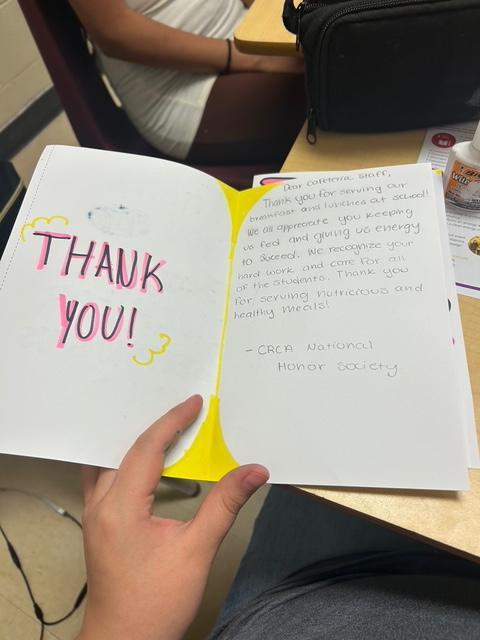 THANK
YOU!
Dear Cafeteria Staff,
Thank you for serving our
breakfast and lunches at school!
We all appreciate you keeping
us fed and giving us energy
to succeed. We recognize your
hard work and care for all
of the students. Thank you
for serving nutricious and
healthy meals!
- CRCA National
Honor Society